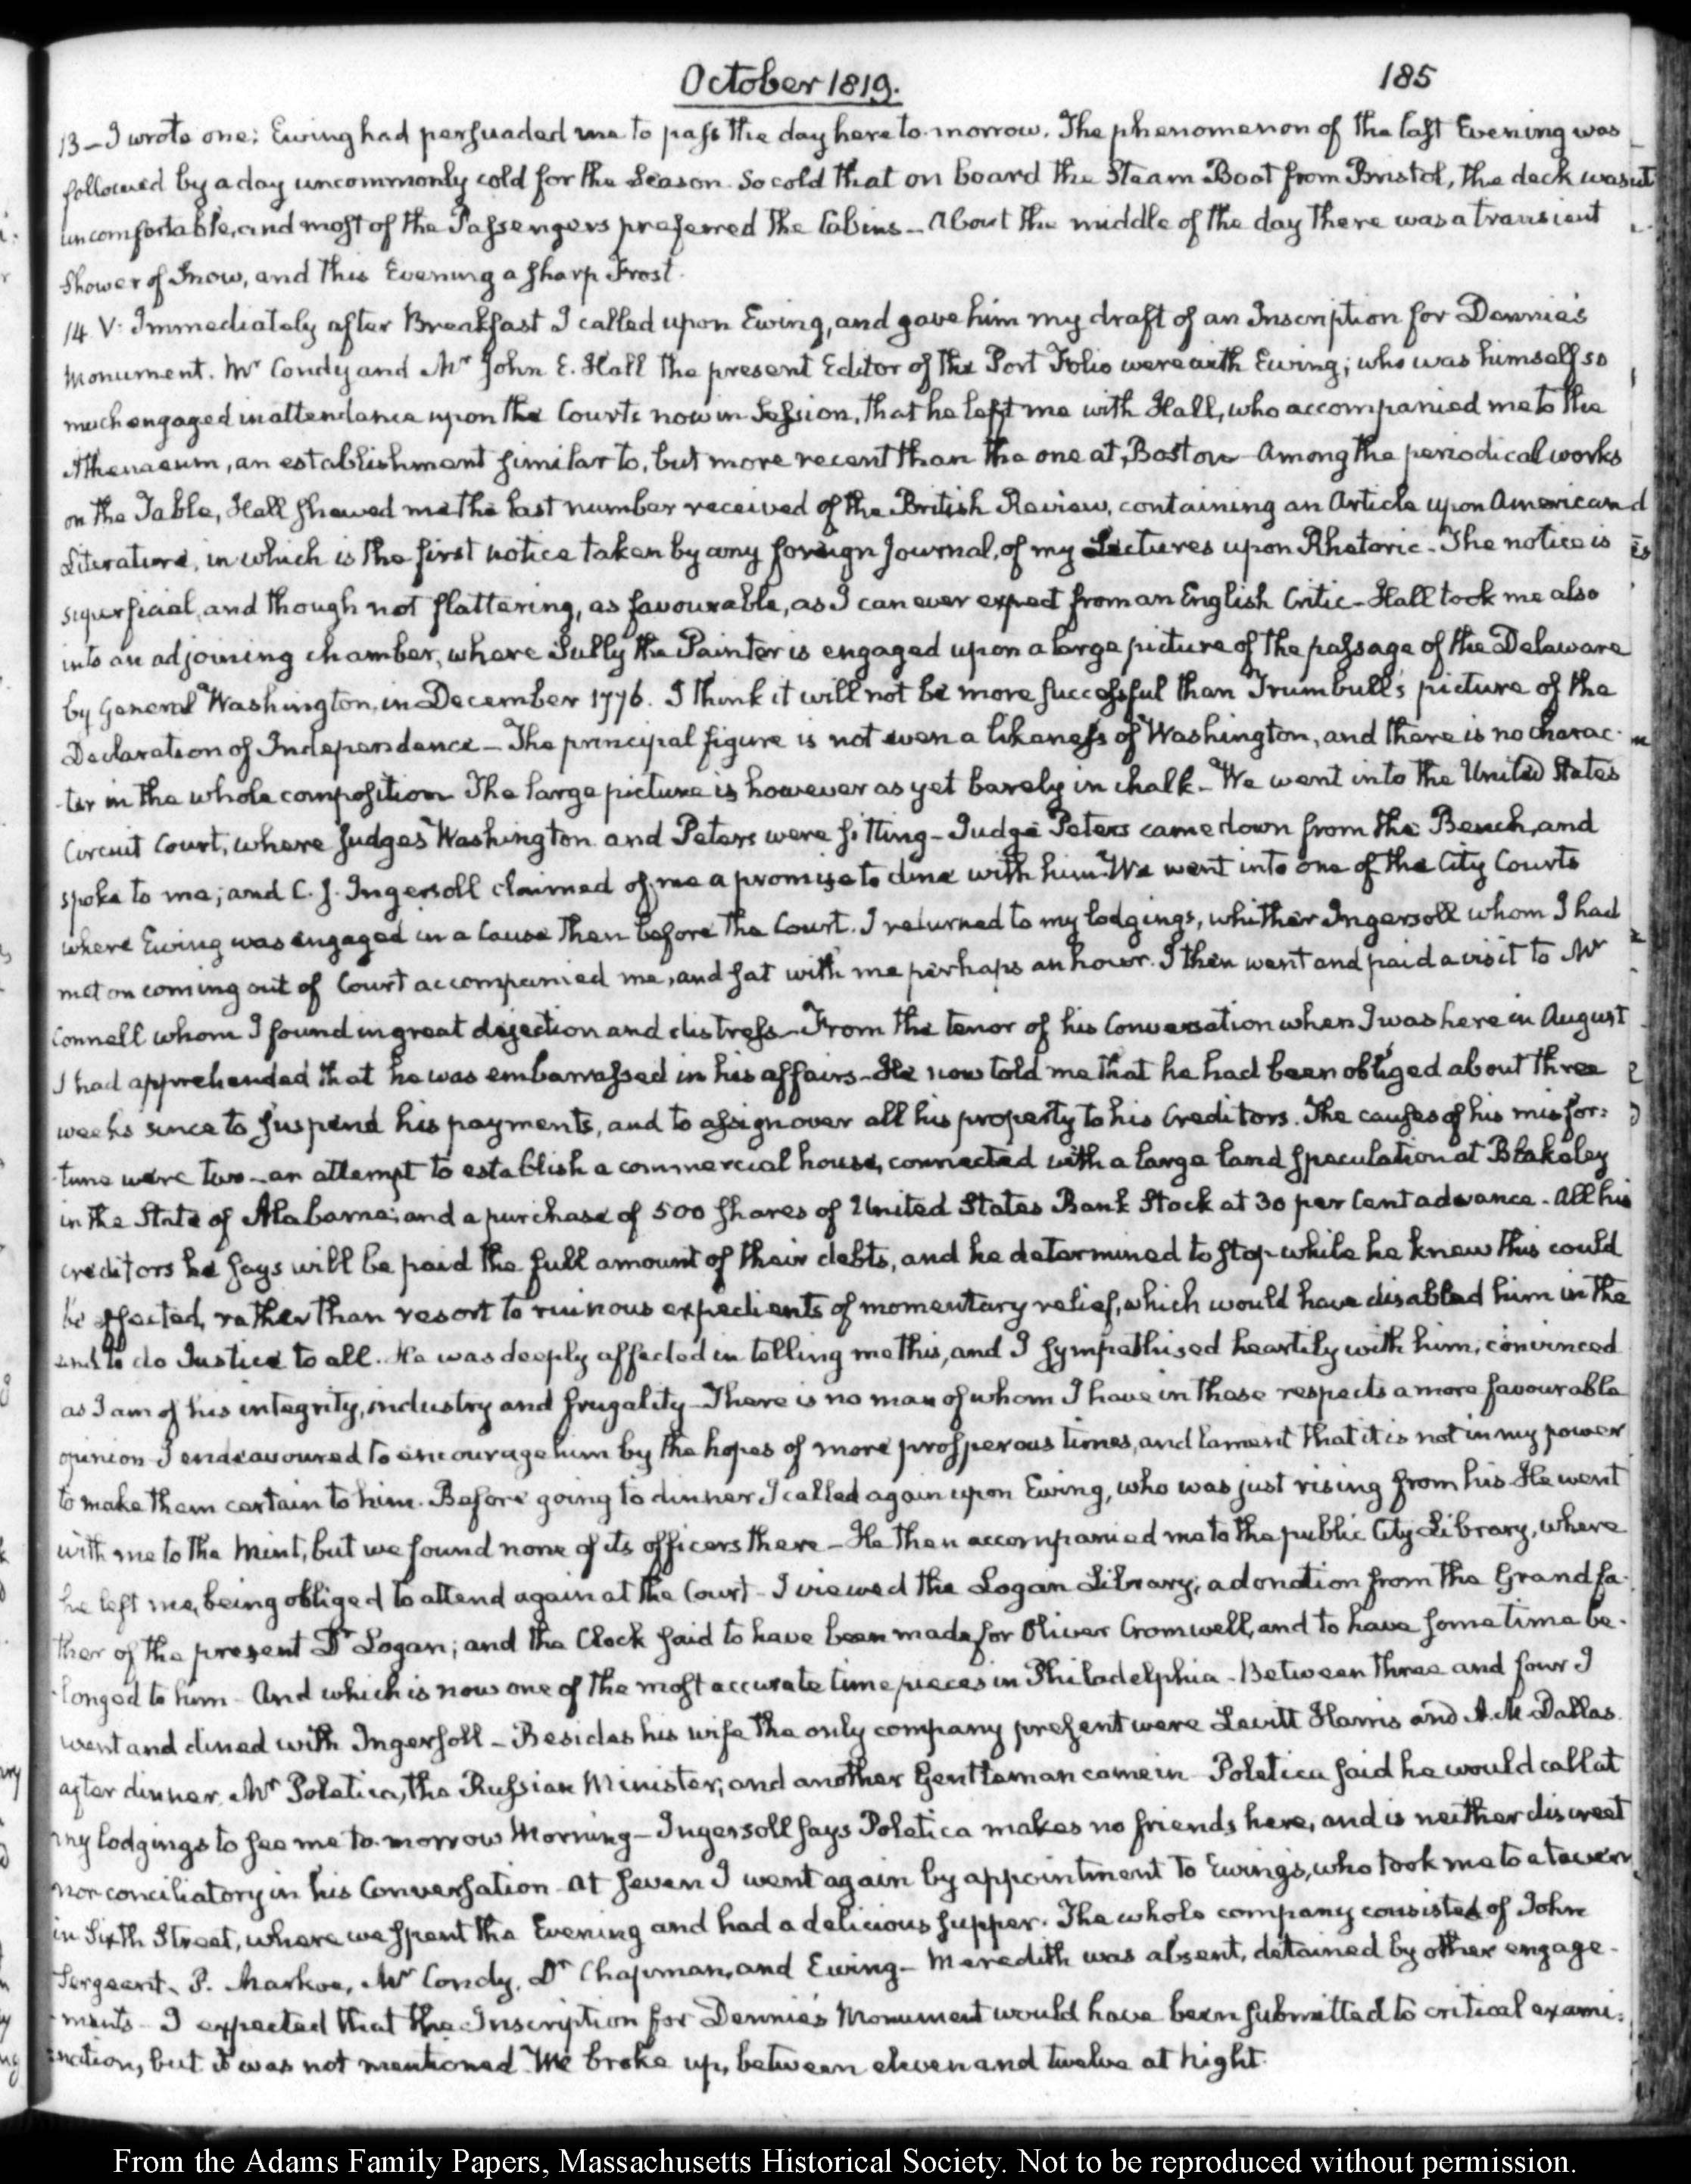 October 1819.
185
13 – I wrote one; Ewing had persuaded me to pass the day here to-morrow. The phenomenon of the last Evening was
followed by a day uncommonly cold for the Season. So cold that on board the Steam Boat from Bristol, the deck was
uncomfortable, and most of the Passengers preferred the Cabins – About the middle of the day there was a transient
Shower of Snow, and this Evening a sharp Frost.
14 V: Immediately after Breakfast I called upon Ewing, and gave him my draft of an Inscription for Dennie's
Monument. Mr Condy and Mr John E. Hall the present Editor of the Port Folio were with Ewing; who was himself so
much engaged in attendance upon the Courts now in Session, that he left me with Hall, who accompanied me to the
Athenaeum, an establishment similar to, but more recent than the one at Boston – Among the periodical works
on the Table, Hall shewed me the last number received of the British Review, containing an Article upon American
Literature, in which is the first notice taken by any foreign Journal, of my Lectures upon Rhetoric – The notice is
superficial, and though not flattering, as favourable, as I can ever expect from an English Critic – Hall took me also
into an adjoining chamber, where Sully the Painter is engaged upon a large picture of the passage of the Delaware
by General Washington, in December 1776. I think it will not be more successful than Trumbull's picture of the
Declaration of Independence – The principal figure is not even a likeness of Washington, and there is no charac-
-ter in the whole composition The large picture is however as yet barely in chalk – We went into the United States
Circuit Court, where Judges Washington and Peters were sitting – Judge Peters came down from the Bench, and
spoke to me; and C. J. Ingersoll claimed of me a promise to dine with him. We went into one of the City Courts
where Ewing was engaged in a Cause then before the Court. I returned to my lodgings, whither Ingersoll whom I had
met on coming out of Court accompanied me, and sat with me perhaps an hour. I then went and paid a visit to Mr
Connell whom I found in great dejection and distress – From the tenor of his Conversation when I was here in August
I had apprehended that he was embarrassed in his affairs – He now told me that he had been obliged about three
weeks since to suspend his payments, and to assign over all his property to his Creditors. The causes of his misfor-
-tune were two – an attempt to establish a commercial house, connected with a large land speculation at Blakeley
in the State of Alabama; and a purchase of 500 shares of United States Bank Stock at 30 per Cent advance – All his
creditors he says will be paid the full amount of their debts, and he determined to stop while he knew this could
be effected, rather than resort to ruinous expedients of momentary relief, which would have disabled him in the
end to do Justice to all. He was deeply affected in telling me this, and I sympathised heartily with him, convinced
as I am of his integrity, industry and frugality – There is no man of whom I have in these respects a more favourable
opinion – I endeavoured to encourage him by the hopes of more prosperous times, and lament that it is not in my power
to make them certain to him. Before going to dinner I called again upon Ewing, who was just rising from his – He went
with me to the Mint, but we found none of its officers there – He then accompanied me to the public City Library, where
he left me, being obliged to attend again at the Court – I viewed the Logan Library; a donation from the Grandfa-
ther of the present Dr Logan; and the Clock said to have been made for Oliver Cromwell, and to have sometime be-
-longed to him – And which is now one of the most accurate time pieces in Philadelphia – Between three and four I
went and dined with Ingersoll – Besides his wife the only company present were Levitt Harris and A. M. Dallas.
after dinner, Mr Poletica, the Russian Minister, and another Gentleman came in – Poletica said he would call at
my lodgings to see me to-morrow Morning – Ingersoll says Poletica makes no friends here, and is neither discreet
nor conciliatory in his Conversation – At seven I went again by appointment to Ewing's, who took me to a tavern
in Sixth Street, where we spent the Evening and had a delicious supper. The whole company consisted of John
Sergeant, P. Markoe, Mr Condy, Dr Chapman, and Ewing – Meredith was absent, detained by other engage-
-ments – I expected that the Inscription for Dennie's Monument would have been submitted to critical exami-
-nation, but it was not mentioned We broke up, between eleven and twelve at night.
From the Adams Family Papers, Massachusetts Historical Society. Not to be reproduced without permission.